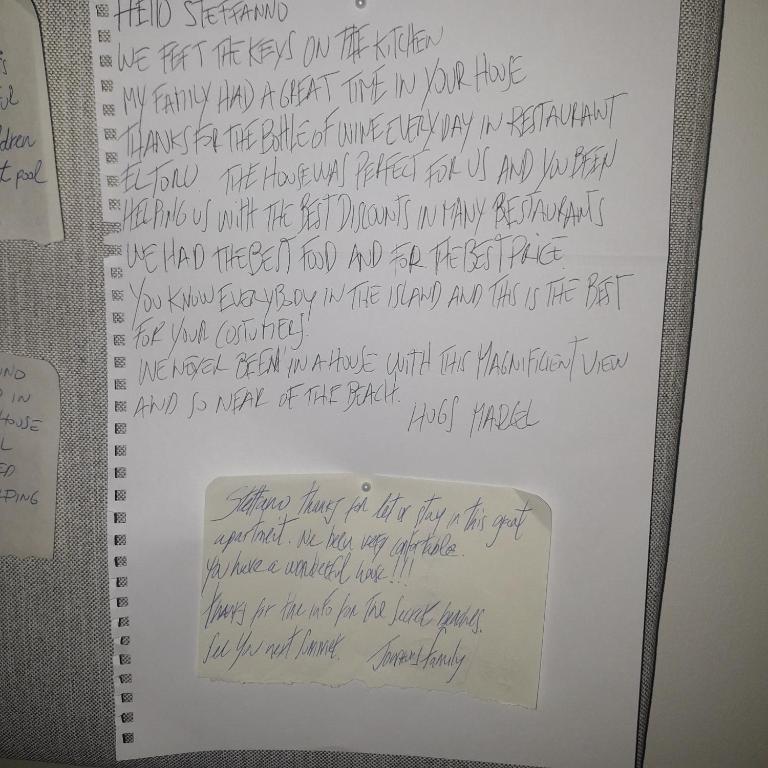 HELLO STEFFANNO
WE LEFT THE KEYS ON THE KITCHEN
MY FAMILY HAD A GREAT TIME IN YOUR HOUSE
THANKS FOR THE BOTTLE OF WINE EVERY DAY IN RESTAURANT
EL TORO THE HOUSE WAS PERFECT FOR US AND YOU BEEN
HELPING US WITH THE BEST DISCOUNTS IN MANY RESTAURANTS
WE HAD THE BEST FOOD AND FOR THE BEST PRICE.
YOU KNOW EVERYBODY IN THE ISLAND AND THIS IS THE BEST
FOR YOUR COSTUMERS.
WE NEVER BEEN IN A HOUSE WITH THIS MAGNIFICIENT VIEW
AND SO NEAR OF THE BEACH.
HUGS MARCEL
Steffano thanks for let us stay in this great
apartment. We been very confortable.
You have a wonderful house!!!
Thanks for the info for the secret beaches.
See You next Summer.
Family
dren
t pool
IN
HOUSE
PING